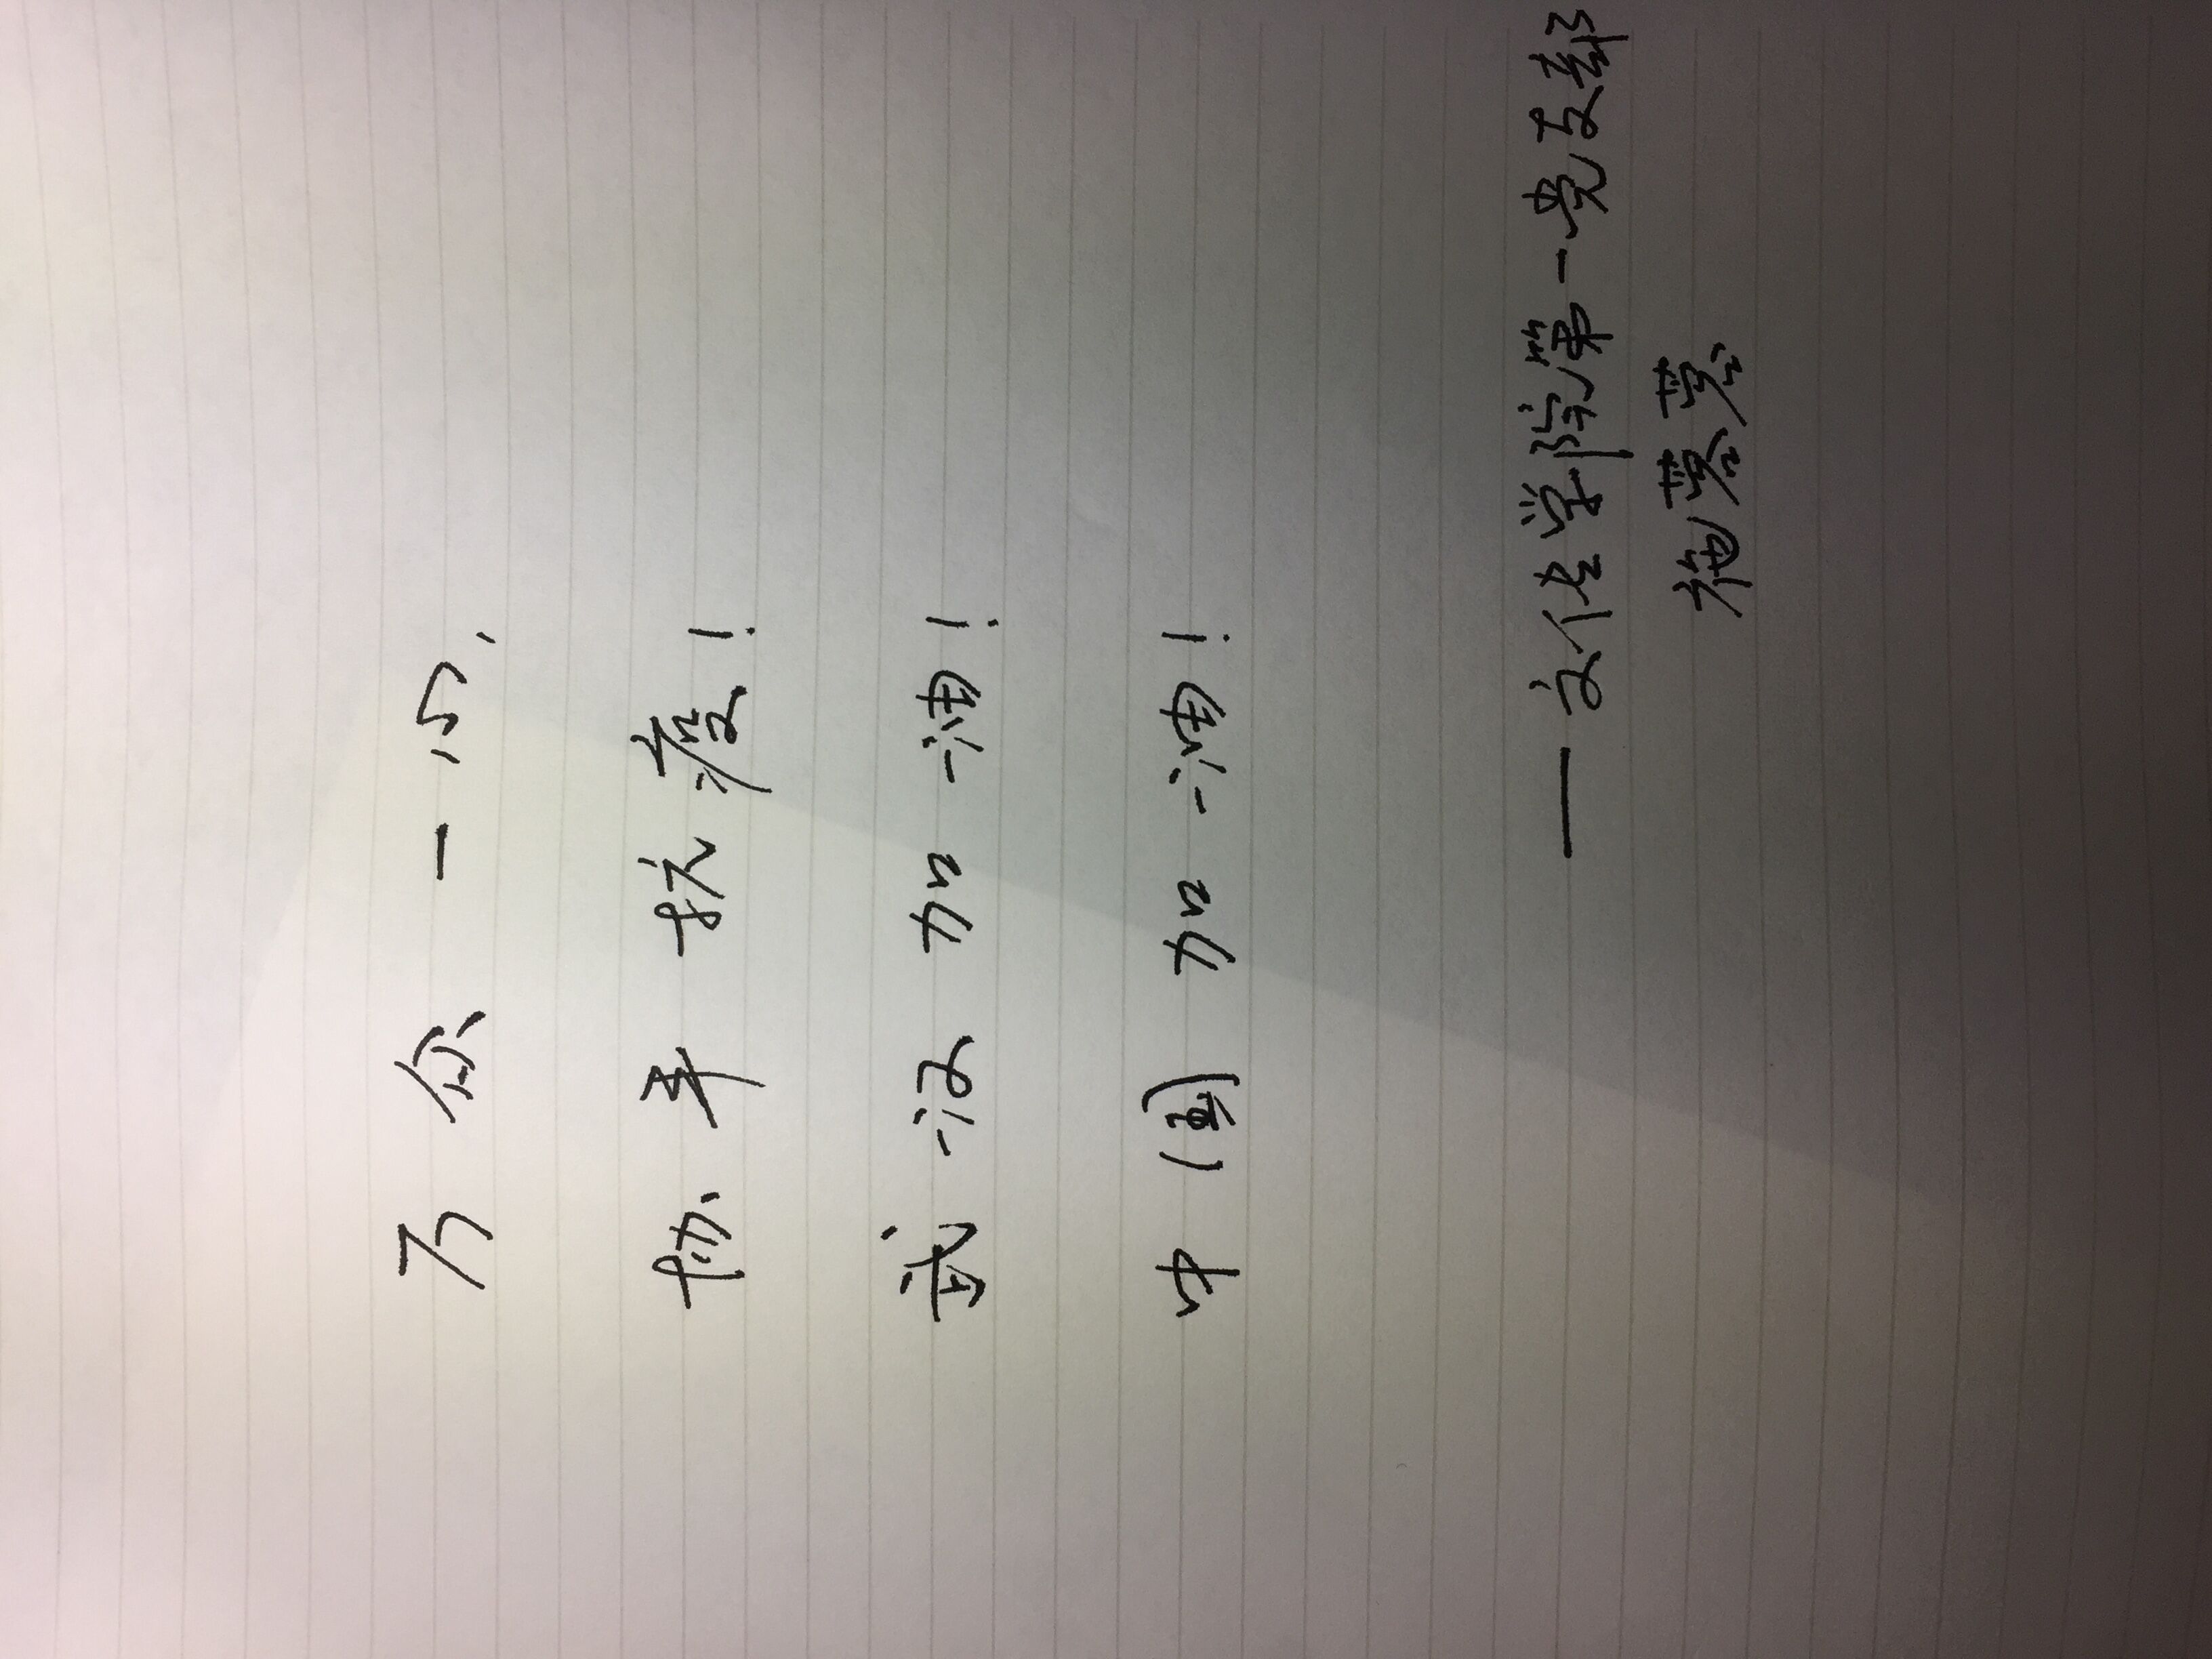 万众一心，
协手抗疫！
武汉加油！
中国加油！
——文传学院第一党支部